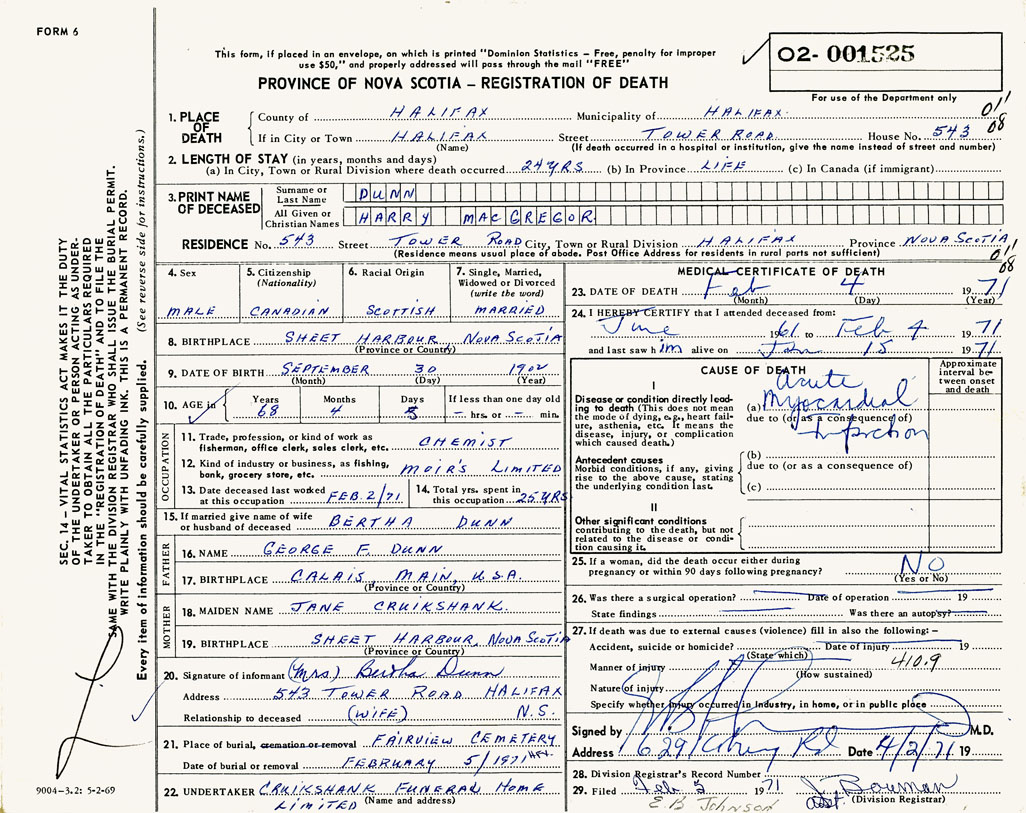 FORM 6
This form, if placed in an envelope, on which is printed "Dominion Statistics – Free, penalty for improper
use $50," and properly addressed will pass through the mail "FREE"
02- 001525
For use of the Department only
PROVINCE OF NOVA SCOTIA – REGISTRATION OF DEATH
SEC. 14 – VITAL STATISTICS ACT MAKES IT THE DUTY
OF THE UNDERTAKER OR PERSON ACTING AS UNDER-
TAKER TO OBTAIN ALL THE PARTICULARS REQUIRED
IN THE "REGISTRATION OF DEATH" AND TO FILE THE
SAME WITH THE DIVISION REGISTRAR WHO SHALL ISSUE THE BURIAL PERMIT.
WRITE PLAINLY WITH UNFADING INK. THIS IS A PERMANENT RECORD.
Every item of information should be carefully supplied. (See reverse side for instructions.)
1. PLACE OF DEATH
County of HALIFAX Municipality of HALIFAX.
011
08
If in City or Town HALIFAX Street TOWER ROAD. House No. 543
(Name) (If death occurred in a hospital or institution, give the name instead of street and number)
2. LENGTH OF STAY (in years, months and days)
(a) In City, Town or Rural Division where death occurred 24 YRS (b) In Province LIFE (c) In Canada (if immigrant)
3. PRINT NAME OF DECEASED
Surname or Last Name DUNN
All Given or Christian Names HARRY MACGREGOR
RESIDENCE No. 543 Street TOWER ROAD City, Town or Rural Division HALIFAX Province NOVA SCOTIA
(Residence means usual place of abode. Post Office Address for residents in rural parts not sufficient)
011
08
4. Sex
MALE
5. Citizenship
(Nationality)
CANADIAN
6. Racial Origin
SCOTTISH
7. Single, Married,
Widowed or Divorced
(write the word)
MARRIED
8. BIRTHPLACE SHEET HARBOUR, NOVA SCOTIA
(Province or Country)
9. DATE OF BIRTH SEPTEMBER 30 1902
(Month) (Day) (Year)
10. AGE in
Years Months Days If less than one day old
68 4 5 – hrs. or – min.
OCCUPATION
11. Trade, profession, or kind of work as
fisherman, office clerk, sales clerk, etc. CHEMIST
12. Kind of industry or business, as fishing,
bank, grocery store, etc. MOIR'S LIMITED
13. Date deceased last worked
at this occupation FEB. 2/71
14. Total yrs. spent in
this occupation 25 YRS
15. If married give name of wife
or husband of deceased BERTHA DUNN
FATHER
16. NAME GEORGE F. DUNN
17. BIRTHPLACE CALAIS, MAIN, U.S.A.
(Province or Country)
MOTHER
18. MAIDEN NAME JANE CRUIKSHANK.
19. BIRTHPLACE SHEET HARBOUR, NOVA SCOTIA
(Province or Country)
20. Signature of informant (Mrs.) Bertha Dunn
Address 543 TOWER ROAD HALIFAX
N.S.
Relationship to deceased (WIFE)
21. Place of burial, cremation or removal FAIRVIEW CEMETERY
HFX.
Date of burial or removal FEBRUARY 5/1971
22. UNDERTAKER CRUIKSHANK FUNERAL HOME
LIMITED (Name and address)
9004-3.2: 5-2-69
MEDICAL CERTIFICATE OF DEATH
23. DATE OF DEATH Feb 4 1971
(Month) (Day) (Year)
24. I HEREBY CERTIFY that I attended deceased from:
June 1961 to Feb 4 1971
and last saw him alive on Jan 15 1971
CAUSE OF DEATH
Approximate interval between onset and death
I
Disease or condition directly leading to death (This does not mean the mode of dying, e.g., heart failure, asthenia, etc. It means the disease, injury, or complication which caused death.)
(a) Acute Myocardial Infarction
due to (or as a consequence of)
Antecedent causes
Morbid conditions, if any, giving rise to the above cause, stating the underlying condition last.
(b)
due to (or as a consequence of)
(c)
II
Other significant conditions
contributing to the death, but not related to the disease or condition causing it.
25. If a woman, did the death occur either during
pregnancy or within 90 days following pregnancy? NO
(Yes or No)
26. Was there a surgical operation? Date of operation 19
State findings Was there an autopsy?
27. If death was due to external causes (violence) fill in also the following: –
Accident, suicide or homicide? Date of injury 19
(State which)
Manner of injury 410.9
(How sustained)
Nature of injury
Specify whether injury occurred in Industry, in home, or in public place
Signed by M.D.
Address Rd Date 4/2/71 19
28. Division Registrar's Record Number
29. Filed Feb 5 1971 J. Bowman
E.B Johnson Asst. (Division Registrar)